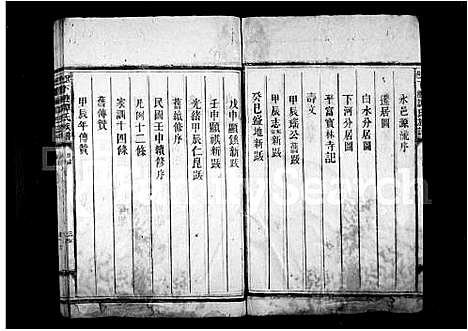 永邑源流序
遷居圖
白水分居圖
下河分居圖
平富寶林寺記
壽文
甲辰瑤公
甲辰志新跋
癸巳盛地新跋
戊申顯新跋
壬申顯祺新跋
光緒甲辰仁昆跋
舊續修序
民國壬申續修序
凡例十二條
家訓十四條
舊傳贊
甲辰年傳贊
FamilySearch